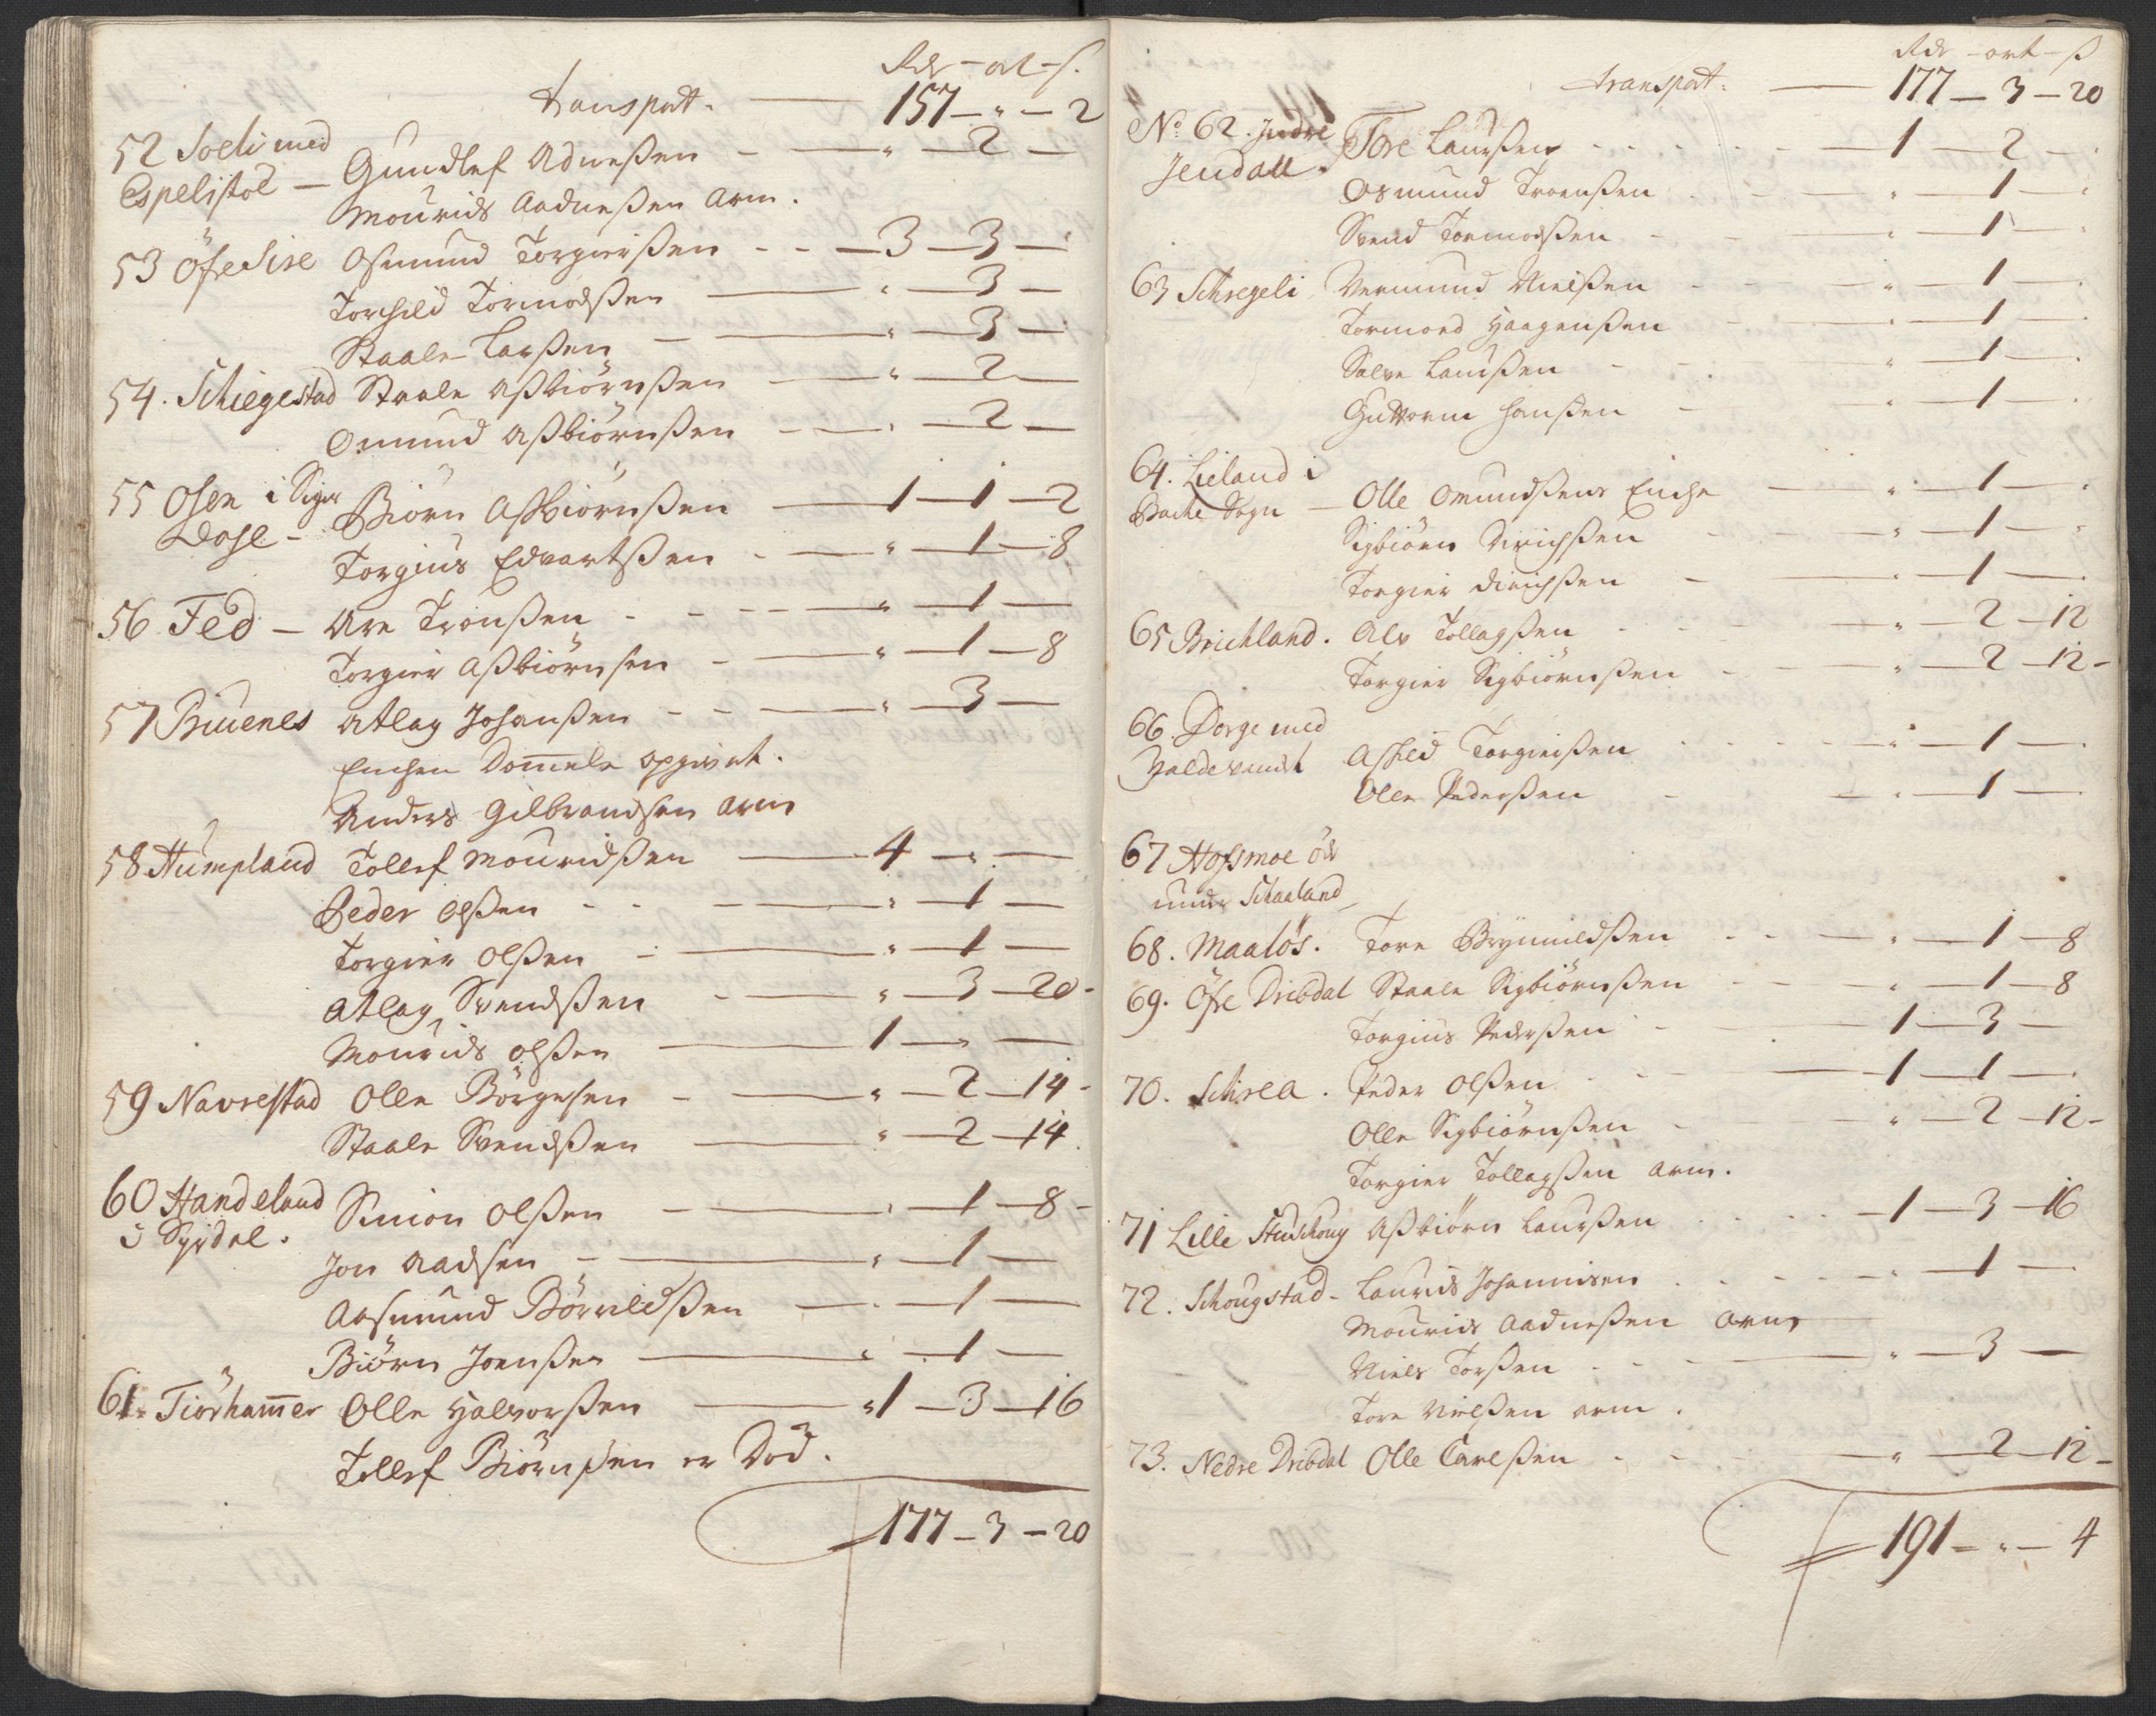 Rdr - ort - s.
transport. — 157 - " - 2
52 Soeli med
Espelistöl — Gundlef Adneßen - — " — 2 —
Mourids Aadneßen Arm.
53 Öfre Sire Osmund Torgierßen - - — 3 — 3 —
Torchild Tormodßen — " — 3 —
Staale Larßen — " — 3 —
54. Schiegestad Staale Aßbiörnßen — " — 2 —
Omund Aßbiörnßen - — " — 2 —
55 Osen i Siger
Dose - Biörn Aßbiörnßen — 1 — 1 — 2
Torgius Edvartßen - — " — 1 — 8
56 Fed — Are Tronßen - - — " — 1 —
Torgier Aßbiörnsen - — " — 1 — 8
57 Biuenes Atlag Johanßen - - — " — 3 —
Enchen Dommele opgivet.
Anders Gilbrandsen arm
58 Humpland Tollef Mouridßen — 4 — " —
Peder Olßen - - — " — 1 —
Torgier Olßen - — " — 1 —
Atlag Svendßen - — " — 3 — 20 -
Mourids Olßen — 1 — " —
59 Navrestad Olle Börgesen - — " — 2 — 14 -
Staale Svendßen — " — 2 — 14.
60 Handeland
i Syrdal. Simon Olßen - — " — 1 — 8 -
Jon Aadsen - — " — 1 —
Aasmund Börrildßen — " — 1 —
Biörn Joenßen — " — 1 —
61. Tiörhammer Olle Halvorßen — "1 — 3 — 16
Tollef Biörnßen er Död.
177 - 3 - 20
Rdr - ort - ß
transport. — 177 — 3 — 20
No 62. Indre
Jendall. Tore Laurßen - - - — 1 — 2 —
Osmund Tronßen - - " — 1 —
Svend Tormodßen - - " — 1 -
63 Schregeli Vermund Nielßen - - " — 1 —
Tormoed Haagenßen - — " — 1 —
Salve Laurßen - - " — 1 —
Guttorm Hanßen - " — 1 —
64. Lieland i
Bache Sogn — Olle Omundßens Enche — " — 1 —
Sigbiörn Dirichßen - — " — 1 —
Torgier Dirichßen - " — 1 —
65 Brichland. Alv Tollagßen - - — " — 2 — 12
Torgier Sigbiörnßen - - " — 2 — 12 -
66. Dorge med
Haldevandt Aschild Torgierßen - - " — 1 —
Olle Pederßen - — " — 1 —
67 Hofsmoe öd
under Schaaland
68. Maalös. Tore Brynnildßen - - — " — 1 — 8
69. Öfre Dribdal Staale Sigbiörnßen - - " — 1 — 8
Torgius Pederßen - — 1 — 3 —
70. Schrea. Peder Olßen - - — 1 — 1 —
Olle Sigbiörnßen - - " — 2 — 12 -
Torgier Tollagßen arm.
71 Lille Studschoug Aßbiörn Laurßen - - - — 1 — 3 — 16
72. Schougstad - Laurids Johannisen - - - " — 1 —
Mourids Aadneßen Arm
Niels Torßen - - - — " — 3 —
Tore Nielßen arm.
73. Nedre Dribdal Olle Carlßen - - — " — 2 — 12 -
191 — " — 4